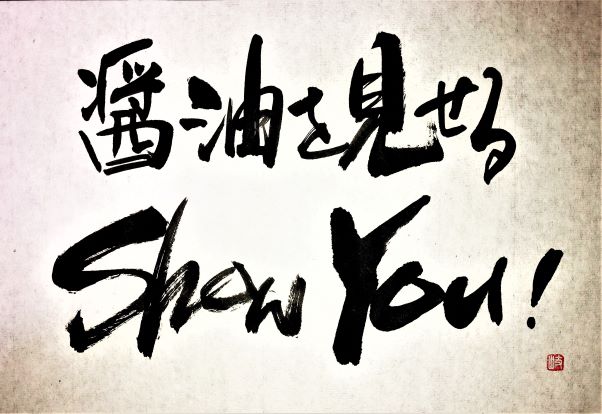 醤油を見せる
Show You!